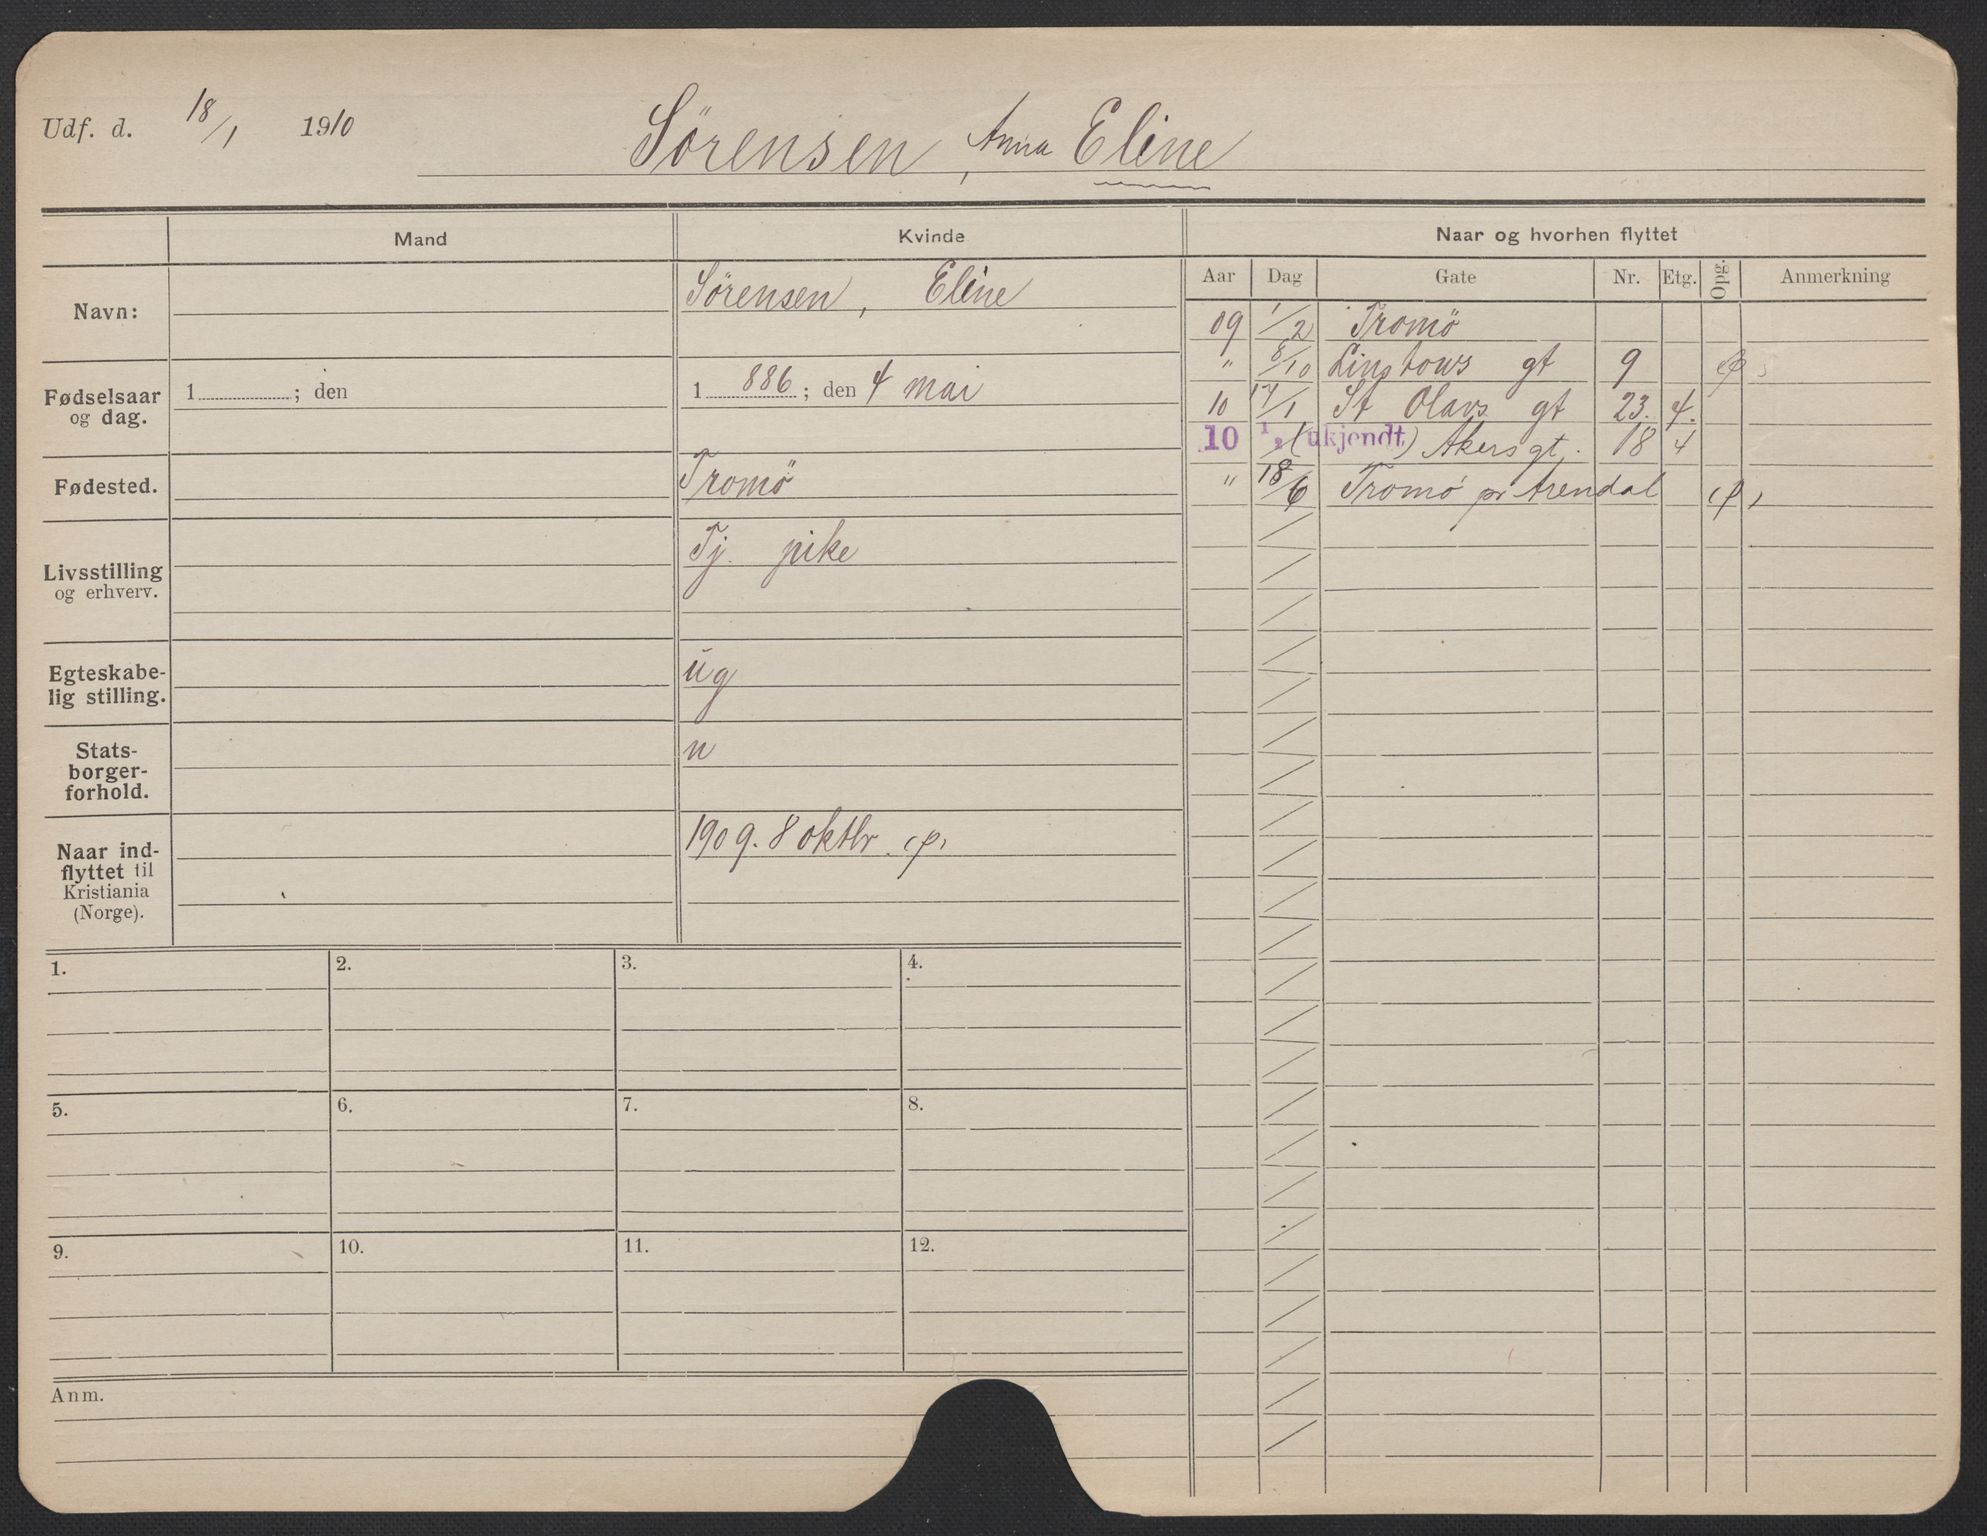 Udf. d. 18/1 1910 Sörensen, Anna Eline
Mand Kvinde Naar og hvorhen flyttet
Aar Dag Gate Nr. Etg. Opg. Anmerkning
Navn: Sörensen, Eline
Fødselsaar og dag. 1 ; den 1 886 ; den 4 mai
Fødested. Tromö
Livsstilling og erhverv. Tj. pike
Egteskabe-
lig stilling. ug
Stats-
borger-
forhold. n
Naar ind-
flyttet til
Kristiania
(Norge). 1909. 8 oktbr.
09 1/2 Tromö
" 8/10 Linstows gt 9
10 17/1 St Olavs gt 23. 4.
10 1/2 (ukjendt) Akersgt. 18 4
" 18/6 Tromö pr Arendal
1. 2. 3. 4.
5. 6. 7. 8.
9. 10. 11. 12.
Anm.